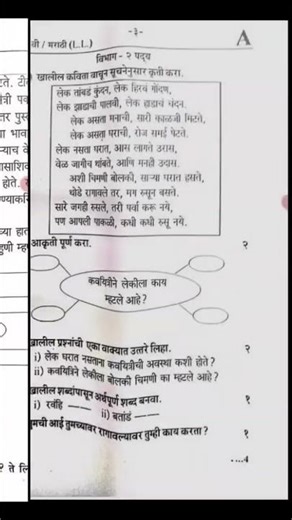 -३-
वी / मराठी (L.L.)
A
विभाग - २ पद्य
खालील कविता वाचून सूचनेनुसार कृती करा.
लेक तांबडं कुंदन, लेक हिरवं गोंदण,
लेक झाडाची पालवी, लेक हाडाचं चंदन.
लेक असता मनाची, सारी काळजी मिटते,
लेक असता घराची, रोज समई पेटते.
लेक नसता घरात, आस लागते उरास,
वेळ जागीच थांबते, आणि मनही उदास.
अशी चिमणी बोलकी, साऱ्या घरात हसते,
थोडे रागावले तर, मग रुसून बसते.
सारे जगही रुसले, तरी पर्वा करू नये,
पण आपली पाकळी, कधी कधी रुसू नये.
आकृती पूर्ण करा. २
कवयित्रीने लेकीला काय
म्हटले आहे?
खालील प्रश्नांची एका वाक्यात उत्तरे लिहा. २
i) लेक घरात नसताना कवयित्रीची अवस्था कशी होते?
ii) कवयित्रीने लेकीला बोलकी चिमणी का म्हटले आहे?
खालील शब्दांपासून अर्थपूर्ण शब्द बनवा. १
i) रवंहि —— ii) बतांडं ——
तुमची आई तुमच्यावर रागावल्यावर तुम्ही काय करता? १
....4